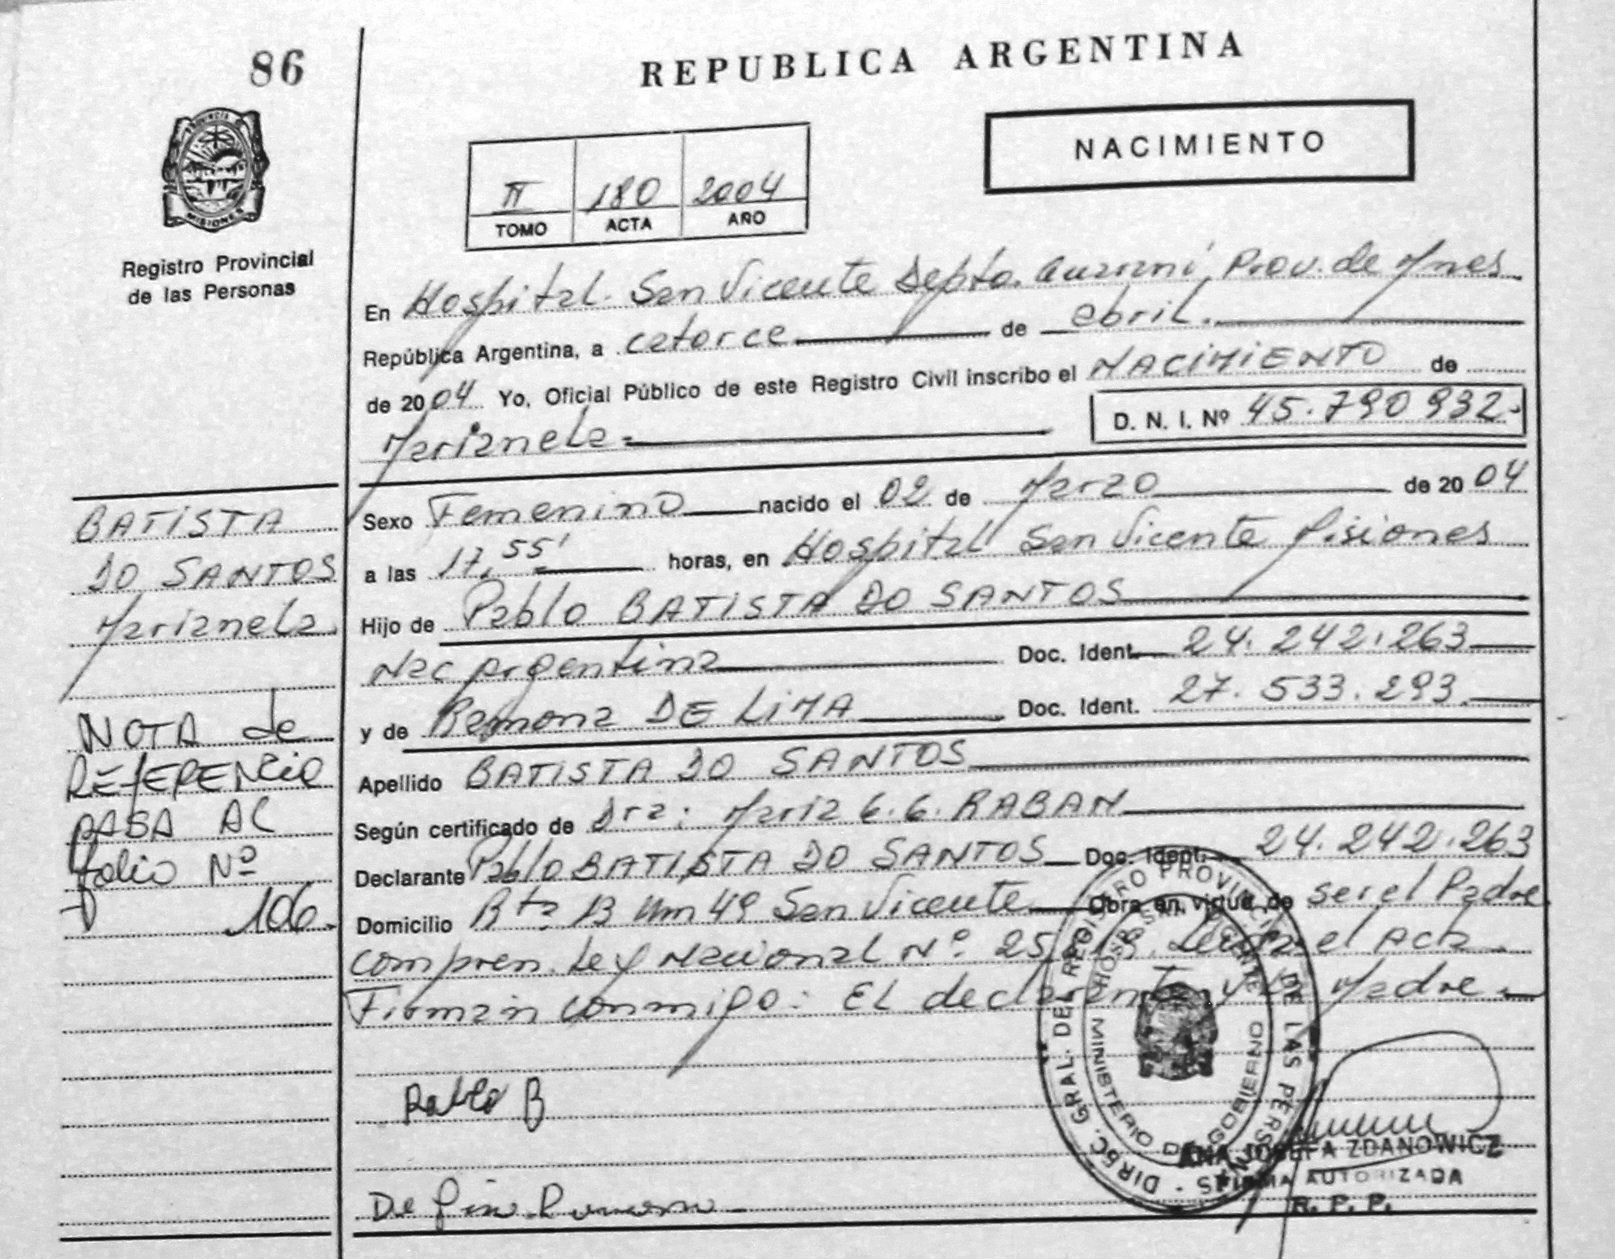 86
REPUBLICA ARGENTINA
NACIMIENTO
II 180 2004
TOMO ACTA AÑO
PROVINCIA DE
MISIONES
Registro Provincial
de las Personas
En Hospital San Vicente Depto. Guaraní, Prov. de Mnes
República Argentina, a catorce de abril.
de 2004 Yo, Oficial Público de este Registro Civil inscribo el NACIMIENTO de
Marianela = D. N. I. Nº 45.790932-
Sexo Femenino nacido el 02 de Marzo de 2004
a las 17,55' horas, en Hospital San Vicente Misiones
Hijo de Pablo BATISTA DO SANTOS
Nac Argentina Doc. Ident. 24.242.263
y de Ramona DE LIMA Doc. Ident. 27.533.293
Apellido BATISTA DO SANTOS
Según certificado de Dra: Maria G.G. RABAN
Declarante Pablo BATISTA DO SANTOS Doc. Ident. 24.242.263
Domicilio Bta B Km 49 San Vicente Obra en virtud de ser el Padre
compren. Ley Nacional Nº 25 el Acta
Firman conmigo: El declarante y la Madre
BATISTA
DO SANTOS
Marianela.
NOTA de
REFERENCIA
PASA AL
folio Nº
106.
Pablo B
De Lima Ramona
DIREC. GRAL. DEL REGISTRO PROVINCIAL DE LAS PERSONAS
HOSP. SAN VICENTE
MINISTERIO DE GOBIERNO
ANA JOSEFA ZDANOWICZ
FIRMA AUTORIZADA
R. P. P.